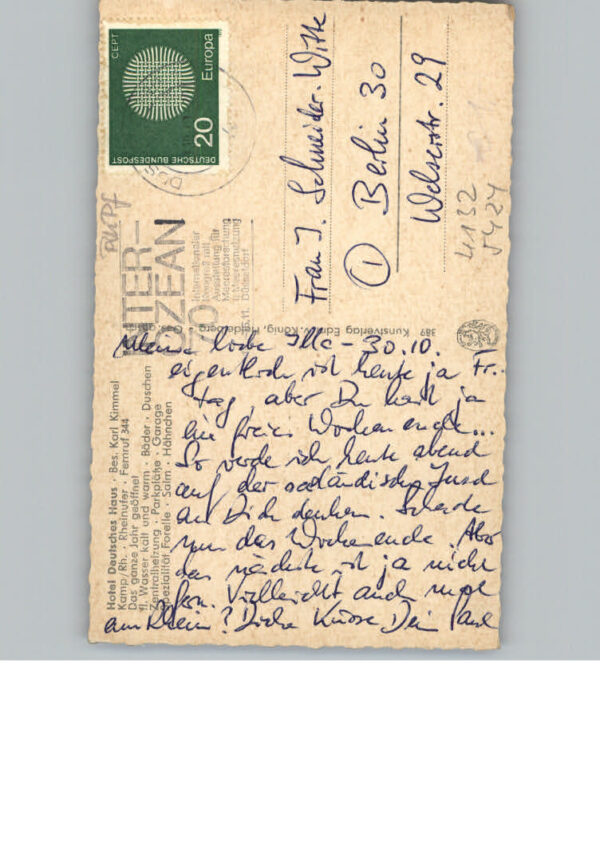 Meine liebe Ille – 30.10.
eigentlich ist heute ja Frei-
tag, aber Du hast ja
ein freies Wochenende...
So werde ich heute abend
auf der Insel
an Dich denken. Schade
nun das Wochenende. Aber
das nächste ist ja nicht
fern. Vielleicht auch mal
am Rhein? Dicke Küsse Dein
Frau I. Schneider-Witte
1 Berlin 30
Welserstr. 29
4132
5424
CEPT
Europa
20
DEUTSCHE BUNDESPOST
INTER-
OZEAN
70
Internationaler
Kongreß mit
Ausstellung für
Meeresforschung
u. Meeresnutzung
Düsseldorf
389 Kunstverlag Edm. v. König, Heidelberg
Hotel Deutsches Haus · Bes. Karl Kimmel
Kamp/Rh. · Rheinufer · Fernruf 344
Das ganze Jahr geöffnet
fl. Wasser kalt und warm · Bäder · Duschen
Zentralheizung · Parkplätze · Garage
Spezialität Forelle · Salm · Hähnchen